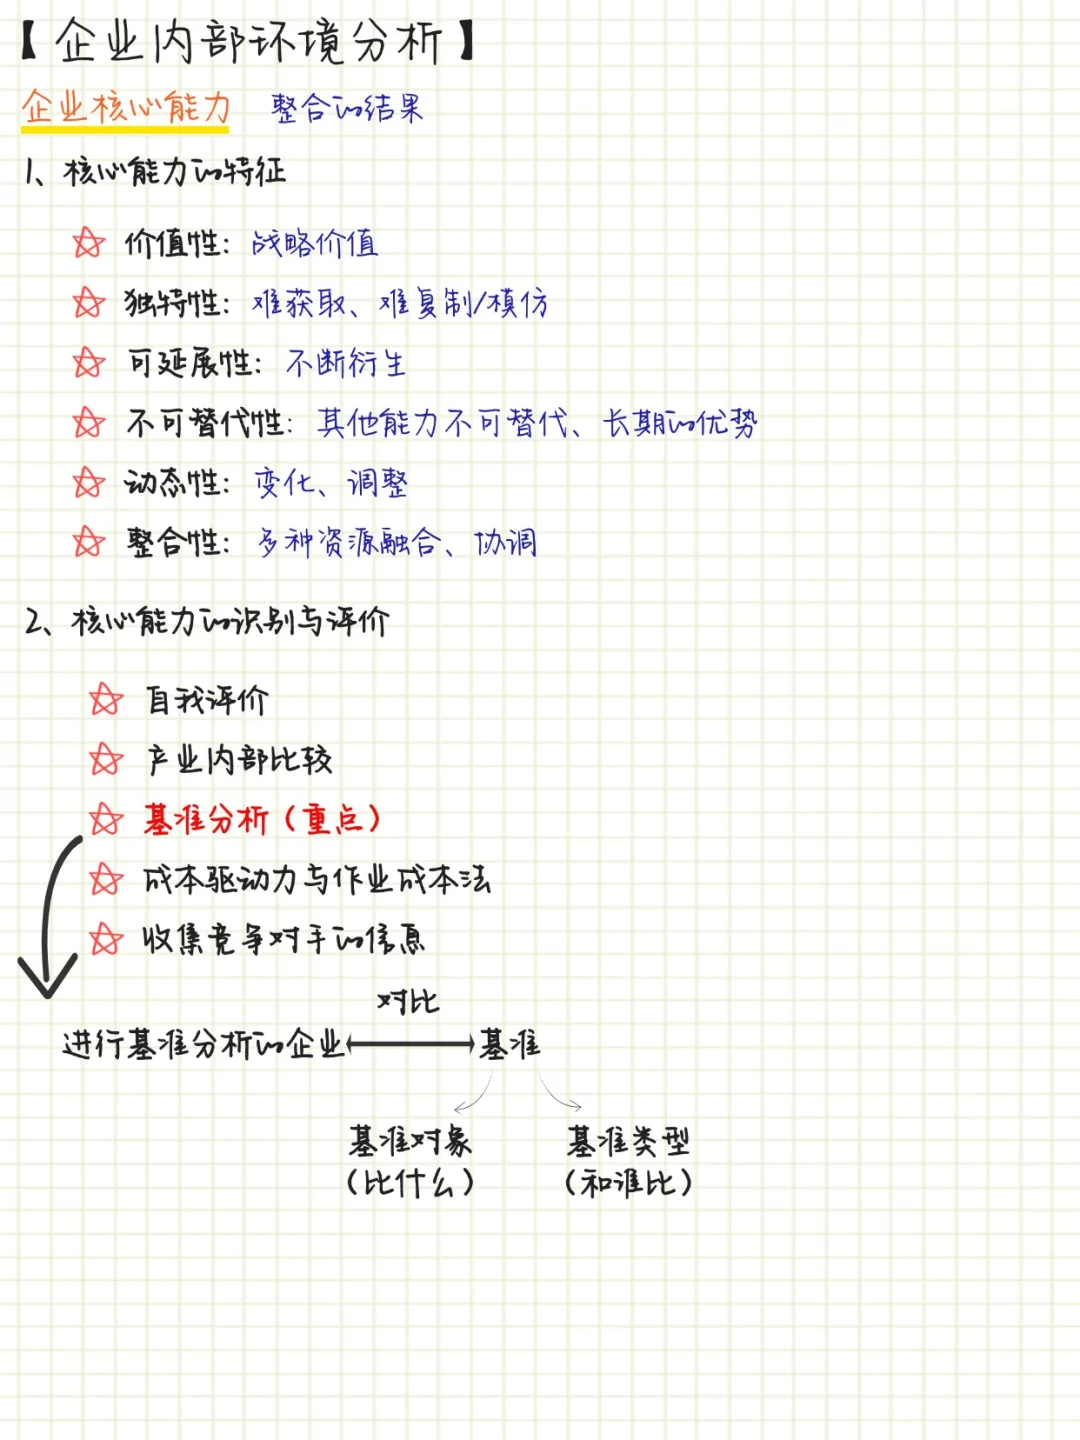 【企业内部环境分析】
企业核心能力 整合的结果
1、核心能力的特征
价值性：战略价值
独特性：难获取、难复制/模仿
可延展性：不断衍生
不可替代性：其他能力不可替代、长期的优势
动态性：变化、调整
整合性：多种资源融合、协调
2、核心能力的识别与评价
自我评价
产业内部比较
基准分析（重点）
成本驱动力与作业成本法
收集竞争对手的信息
对比
进行基准分析的企业 基准
基准对象 基准类型
（比什么） （和谁比）